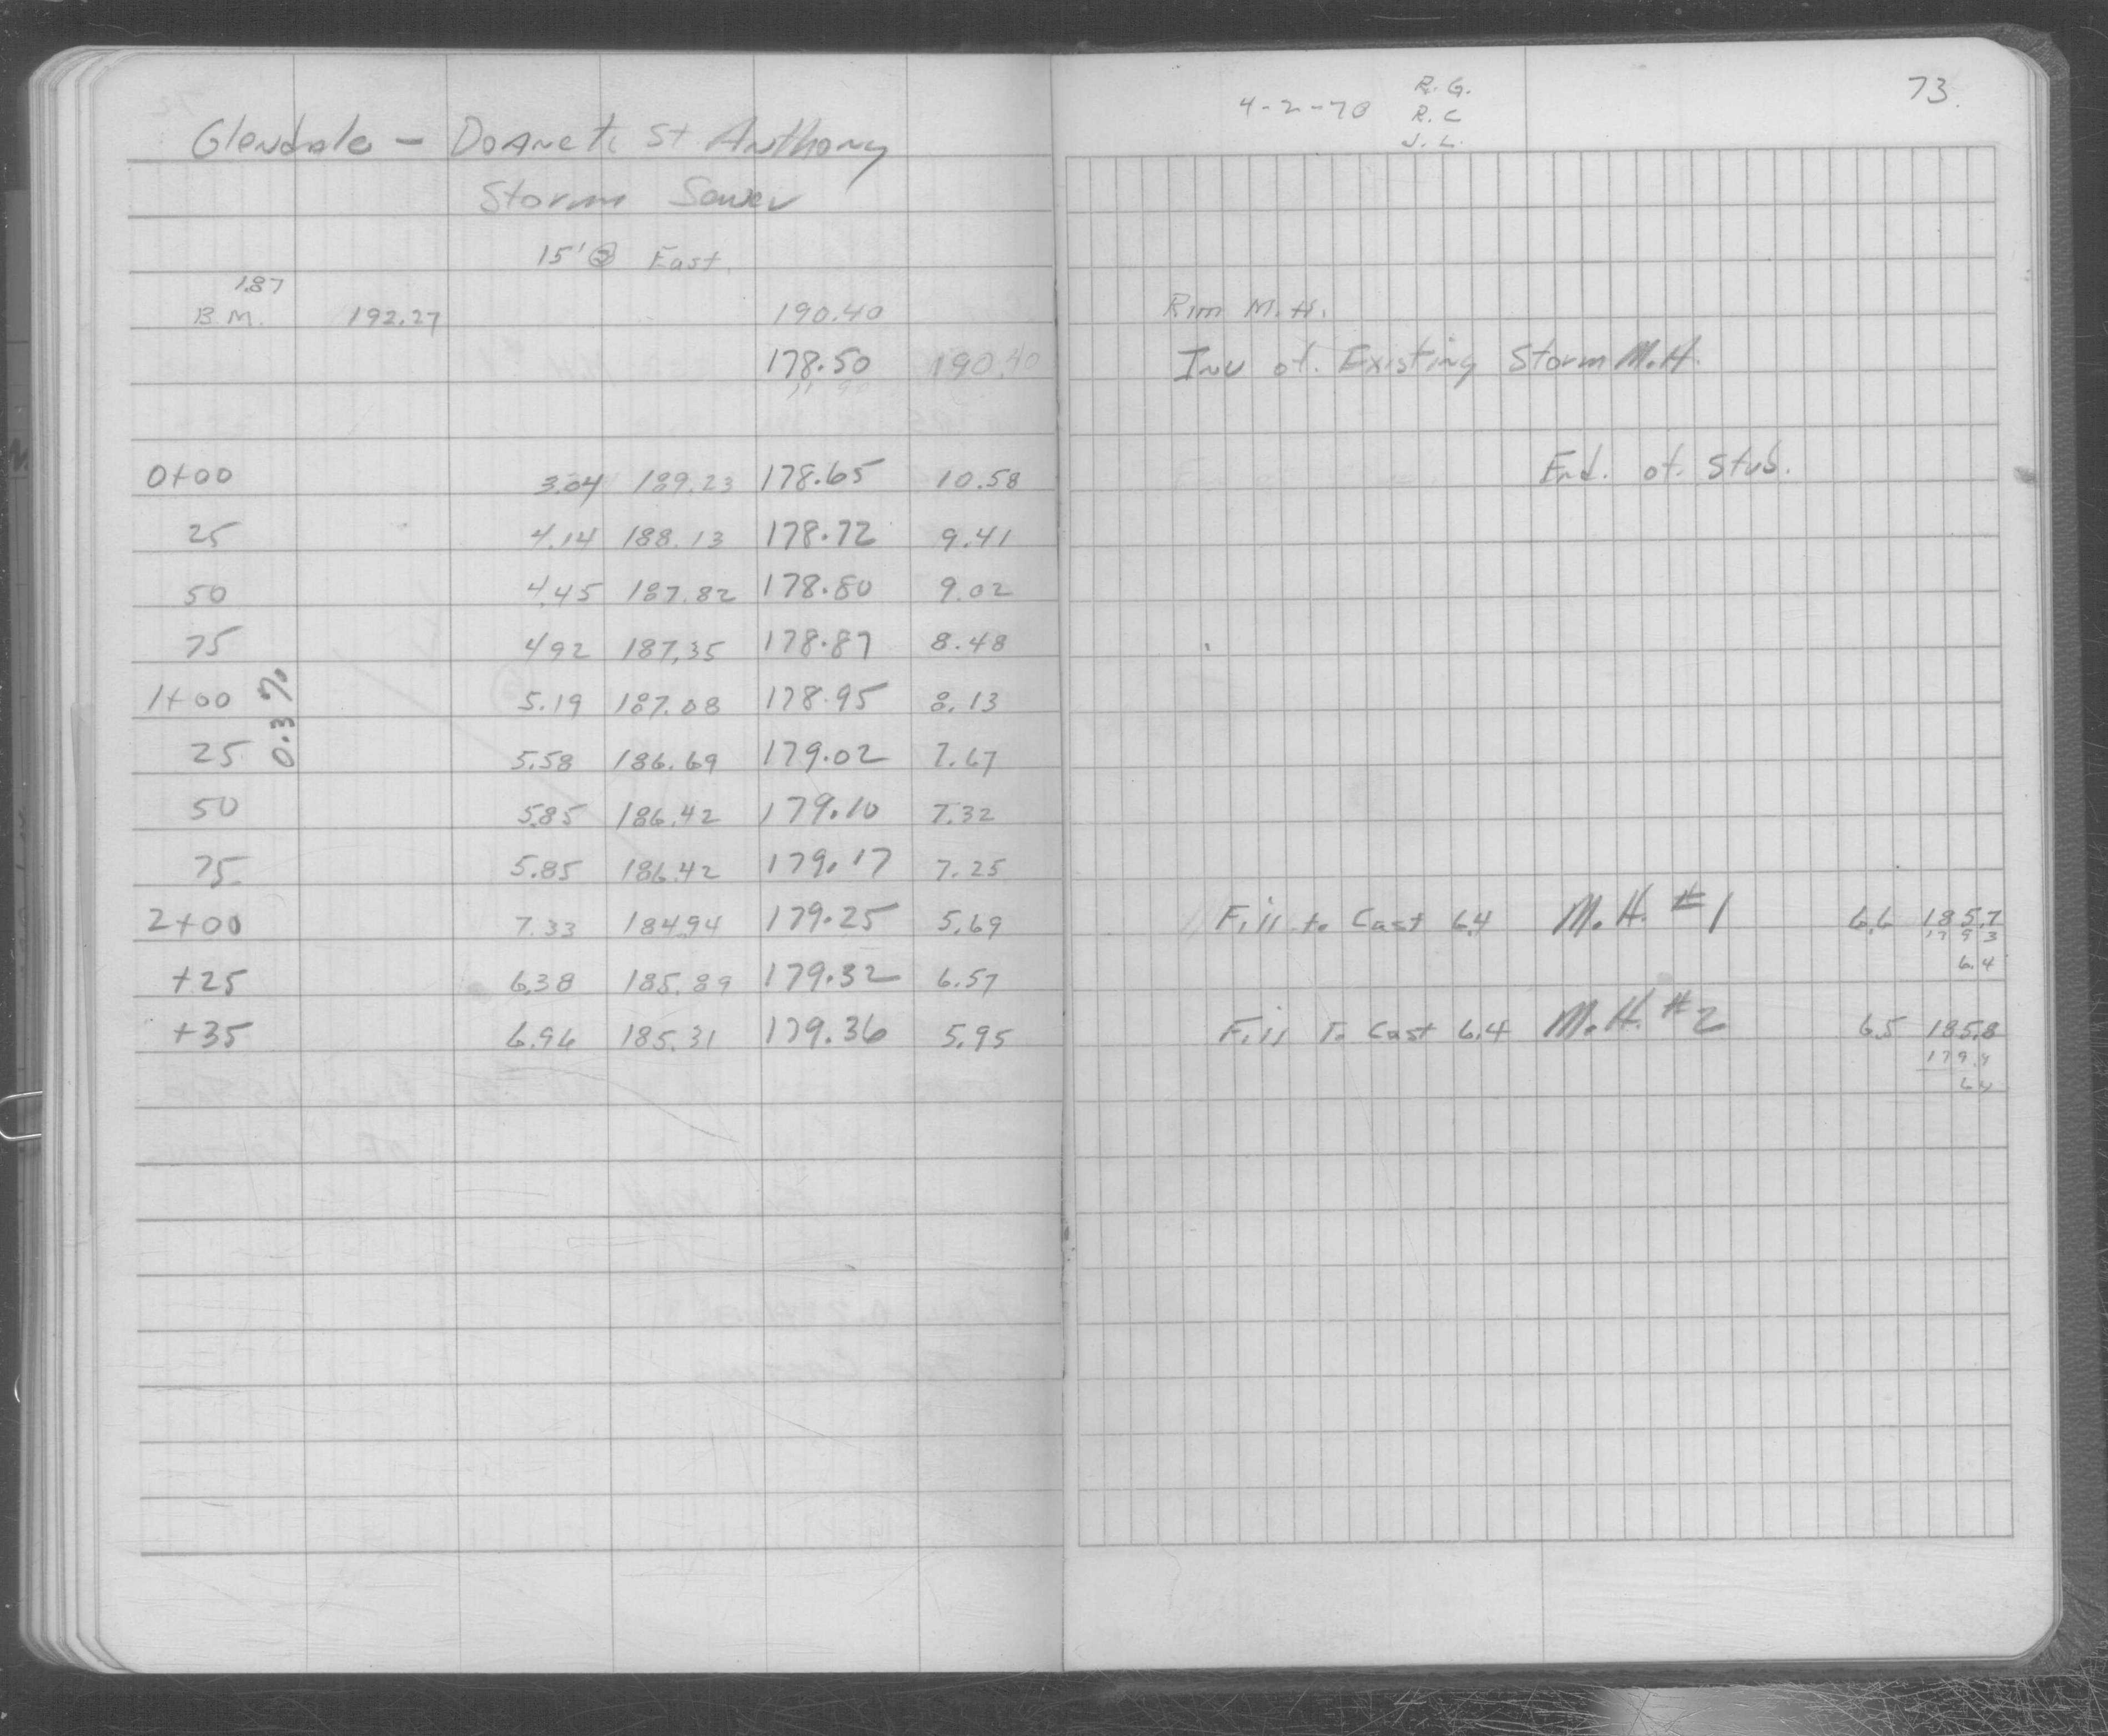 Glendale – Doane to St Anthony
Storm Sewer
15' @ East.
1.87
B M. 192.27 190.40
178.50 190.40
11 90
0+00 3.04 189.23 178.65 10.58
25 4.14 188.13 178.72 9.41
50 4.45 187.82 178.80 9.02
75 492 187.35 178.87 8.48
1+00 5.19 187.08 178.95 8.13
0.3 %
25 5.58 186.69 179.02 7.67
50 5.85 186.42 179.10 7.32
75 5.85 186.42 179.17 7.25
2+00 7.33 184.94 179.25 5.69
+25 6.38 185.89 179.32 6.57
+35 6.96 185.31 179.36 5.95
4-2-70 R.G.
R.C
J.L.
73.
Rim M.H.
Inv of. Existing Storm M.H.
End. of. Stub.
Fill to Cast 6.4 M.H. #1 6.6 185.7
179 3
6.4
Fill To Cast 6.4 M.H. #2 6.5 185.8
179.4
6.4